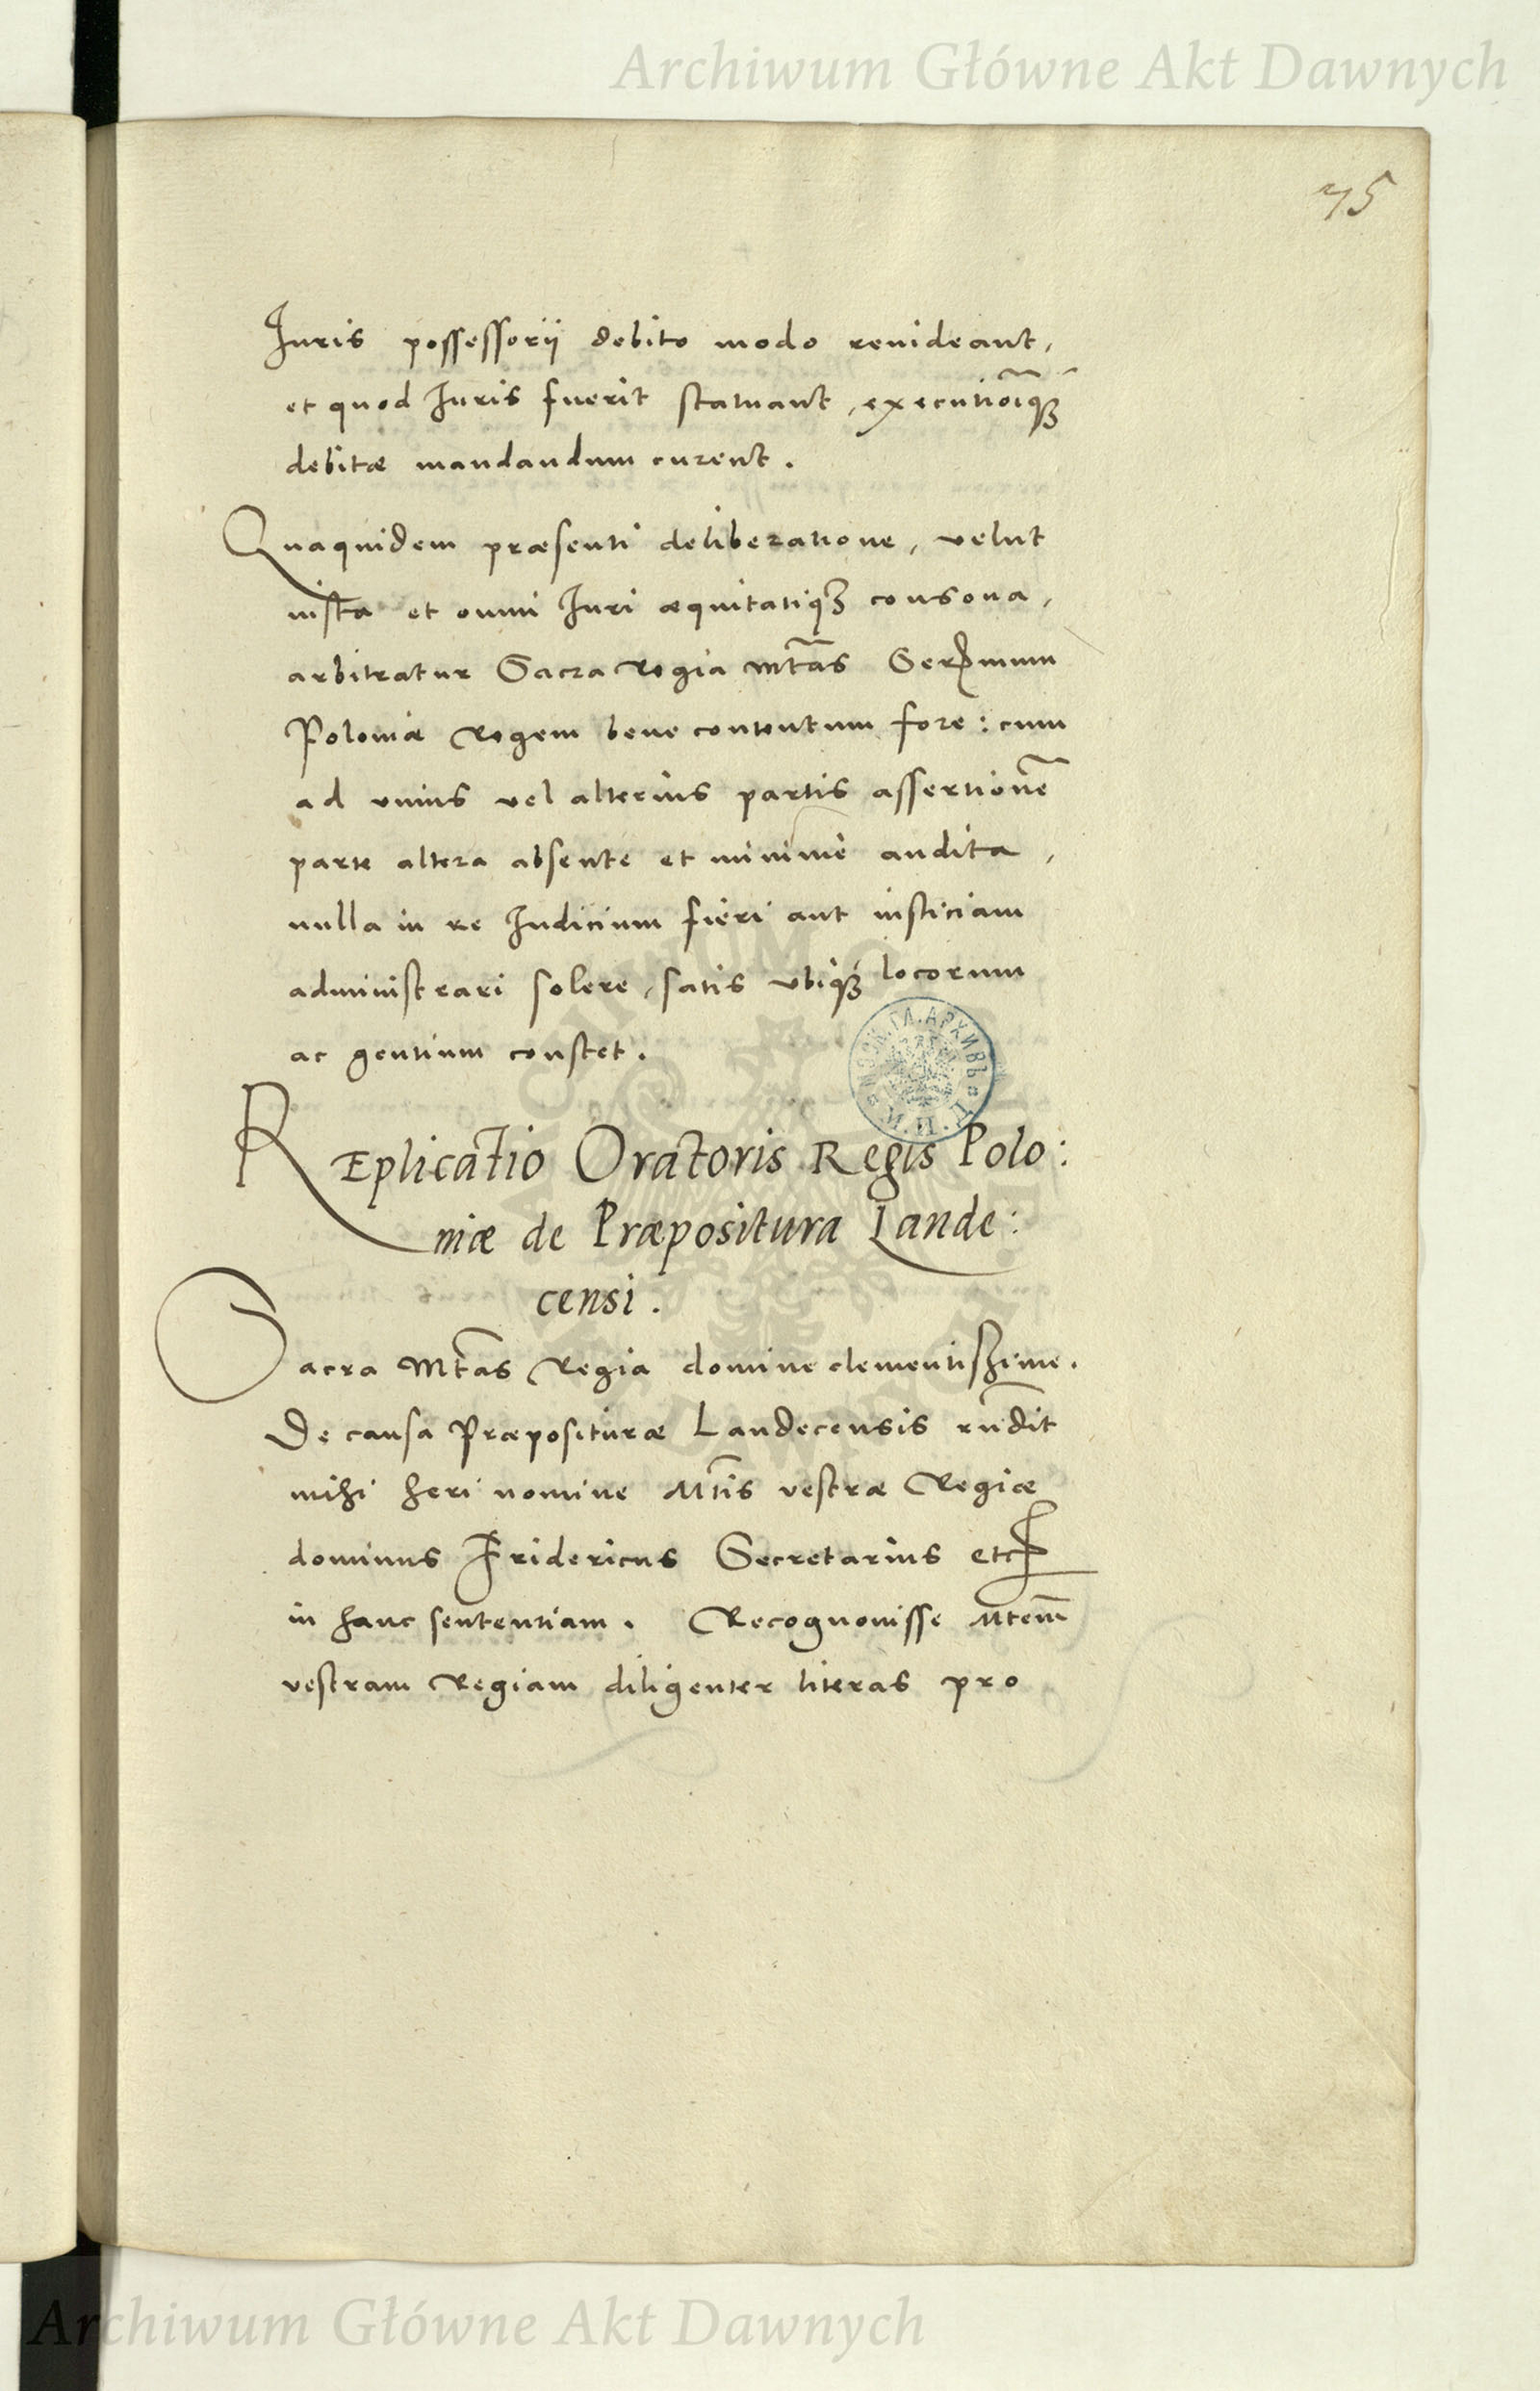 Archiwum Główne Akt Dawnych
75
Iuris possessorij debito modo reuideant,
et quod Iuris fuerit statuant, executiōiqꝫ
debitæ mandandum curent.
Quaquidem præsenti deliberatione, velut
iusta et omni Iuri æquitatiqꝫ consona,
arbitratur Sacra Regia Mtas Sermum
Poloniæ Regem bene contentum fore: cum
ad vnius vel alterius partis assertionē
parte altera absente et minime audita,
nulla in re Iudicium fieri aut iusticiam
administrari solere, satis vbiqꝫ locorum
ac gentium constet.
REplicatio Oratoris Regis Polo:
niæ de Præpositura Lande:
censi.
Sacra Mtas Regia domine clementissime.
De causa Præposituræ Landecensis rn̄dit
mihi heri nomine Mtis vestræ Regiæ
dominus Fridericus Secretarius etc
in hanc sententiam. Recognouisse Mtem
vestram Regiam diligenter literas pro
Archiwum Główne Akt Dawnych